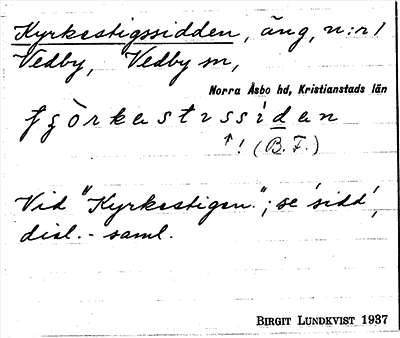 Kyrkestigssidden, äng, n:r 1
Vedby, Vedby sn,
Norra Åsbo hd, Kristianstads län
↑! (B.F.)
Vid "Kyrkestigen."; se 'sidd',
disl.-saml.
BIRGIT LUNDKVIST 1937